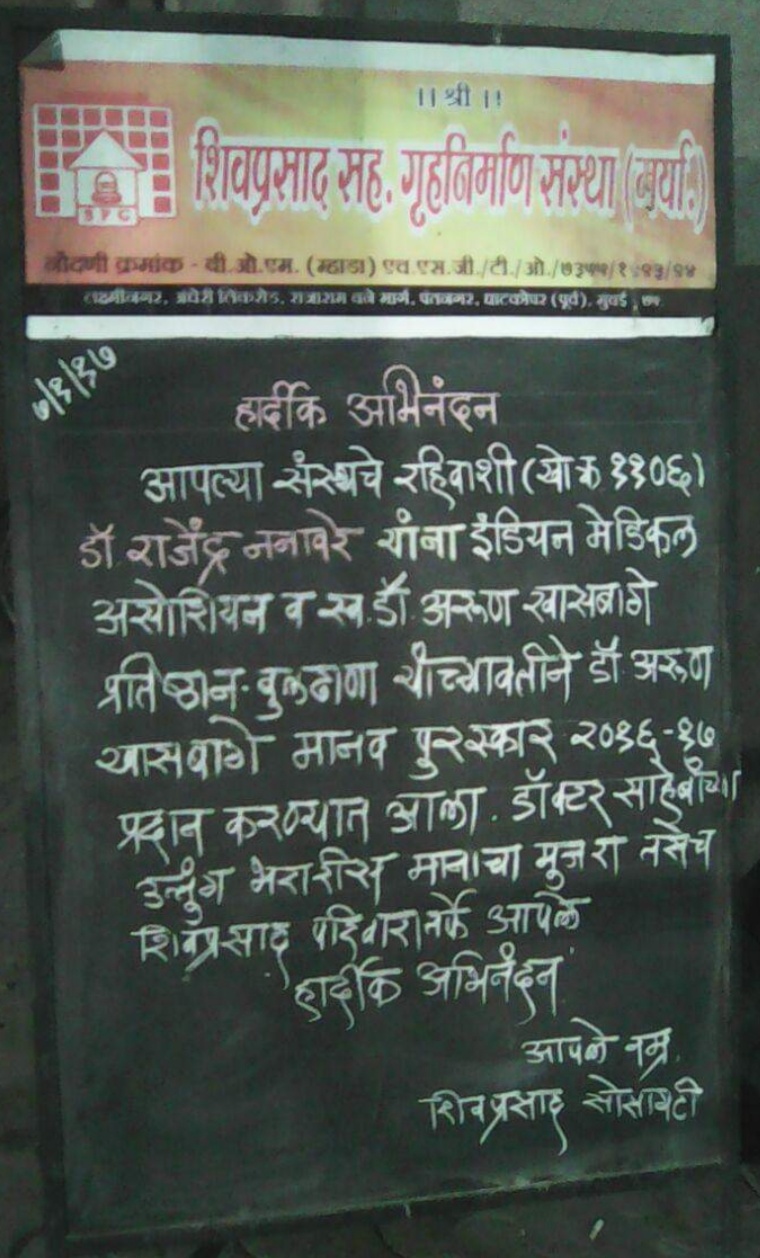 ।। श्री ।।
शिवप्रसाद सह. गृहनिर्माण संस्था (मर्या.)
SPG
नोंदणी क्रमांक - बी.ओ.एम. (म्हाडा) एच.एस.जी./टी./ओ./७३५५/१९९३/९४
लक्ष्मीनगर, अंधेरी लिंकरोड, राजाराम बने मार्ग, पंतनगर, घाटकोपर (पूर्व), मुंबई . ७५
७/१/१७
हार्दीक अभिनंदन
आपल्या संस्थचे रहिवाशी (खो क्र ११०६)
डॉ. राजेंद्र ननावरे यांना इंडियन मेडिकल
असोशियन व स्व. डॉ. अरूण खासबागे
प्रतिष्ठान-बुलढाणा यांच्यावतीने डॉ अरूण
खासबागे मानव पुरस्कार २०१६-१७
प्रदान करण्यात आला. डॉक्टर साहेबांच्या
उत्तुंग भरारीस मानाचा मुजरा तसेच
शिवप्रसाद परिवारातर्फे आपले
हार्दीक अभिनंदन
आपले नम्र.
शिवप्रसाद सोसायटी